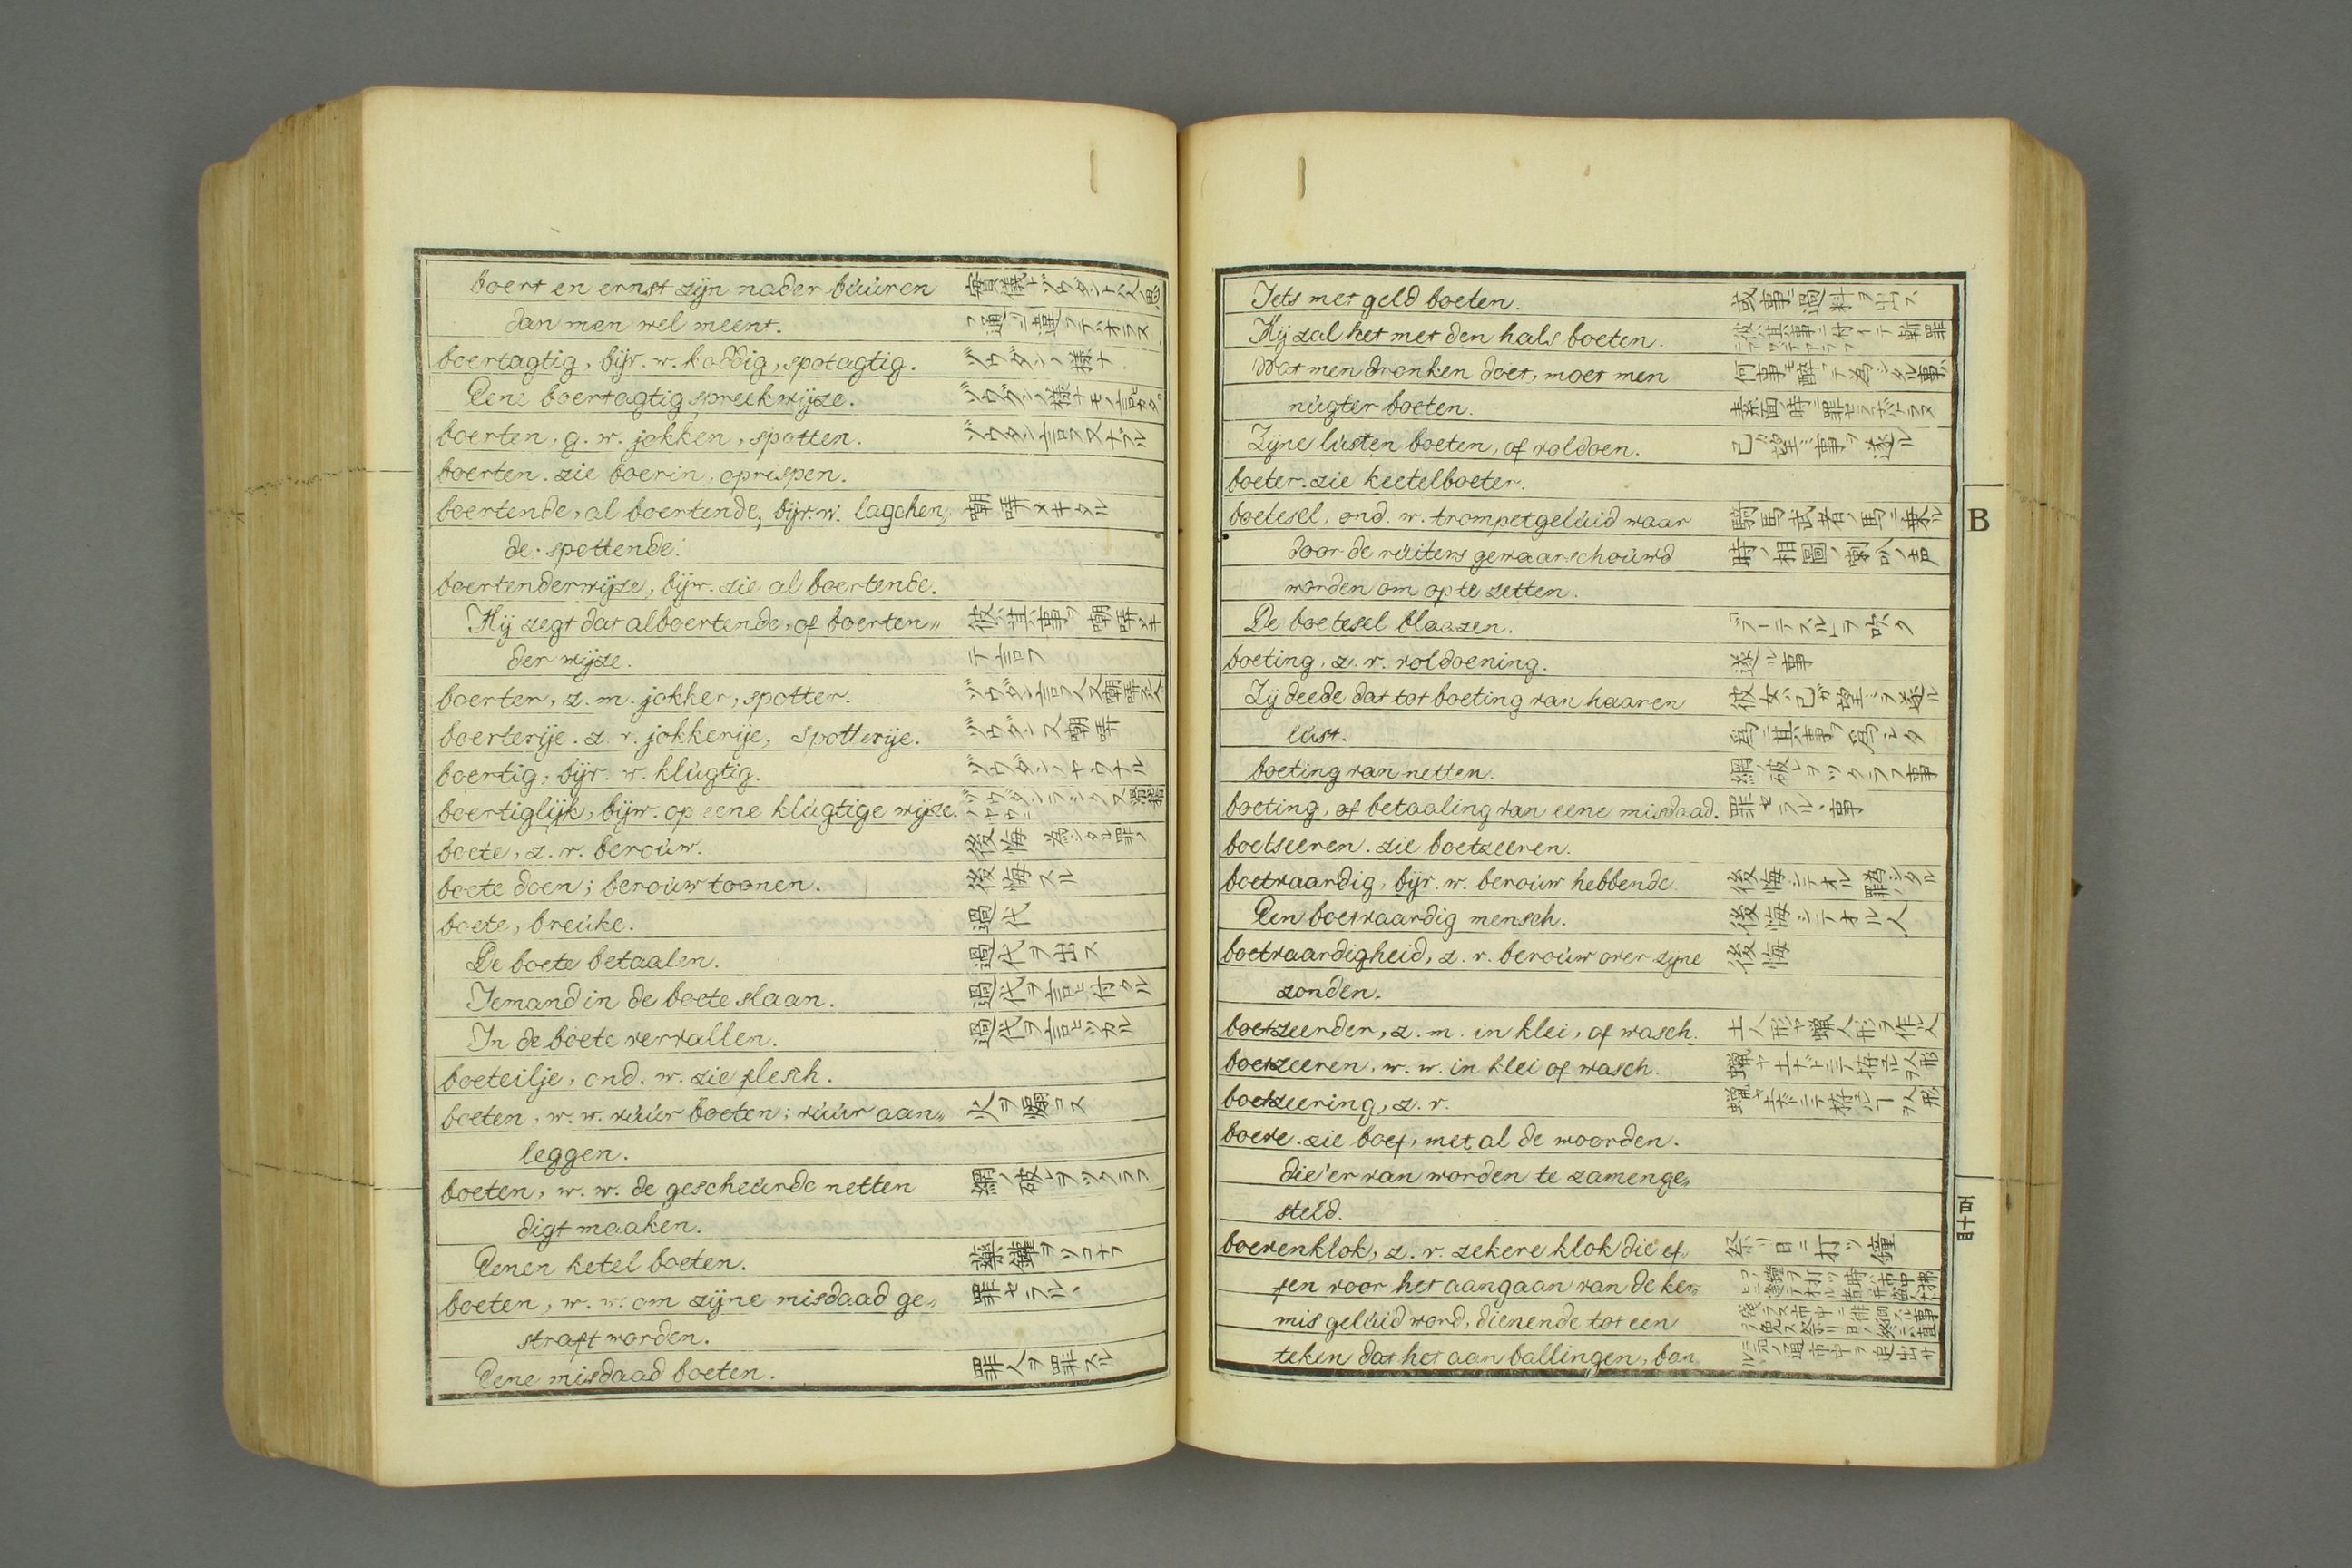 boert en ernst zÿn nader búúren 實儀トゾウダントハ人ノ思
dan men wel meent. フ通ニ違フテハオラス
boertagtig, bÿv. w. koddig, spotagtig. ゾウダンノ様ナ
Eene boertagtig spreekwÿze. ゾウダンノ様ナモノ言カタ
boerten, g. w. jokken, spotten. ゾウダン言フ又ナブル
boerten. zie boerin, oprispen.
boertende, al boertende, bÿv. w. lagchen„ 嘲哢メキタル
de. spottende.
boertenderwÿze, bÿw. zie al boertende.
Hÿ zegt dat alboertende, of boerten„ 彼ハ其事ヲ嘲哢メキ
der wÿze. テ言フ
boerter, z. m. jokker, spotter. ゾウダン言フ人又嘲哢スル人
boerterÿe. z. v. jokkerÿe, spotterÿe. ゾウダン又嘲哢
boertig, bÿv. w. klúgtig. ゾウダンノヤウナル
boertiglÿk, bÿw. op eene klúgtige wÿze.
boete, z. v. beroúw. 後悔 為シタル罪ノ
boete doen; beroúw toonen. 後悔スル
boete, breúke. 過代
De boete betaalen. 過代ヲ出ス
Iemand in de boete slaan. 過代ヲ言ヒ付クル
In de boete vervallen. 過代ヲ言ヒツカル
boeteilje, ond. w. zie flesch.
boeten, w. w. vúúr boeten; vúúr aan„ 火ヲ熾コス
leggen.
boeten, w. w. de gescheúrde netten 網ノ破レヲツクラフ
digt maaken.
Eenen ketel boeten. 藥鑵ヲソコナフ
boeten, w. w. om zÿne misdaad ge„ 罪セラルヽ
straft worden.
Eene misdaad boeten. 罪人ヲ罪スル
Iets met geld boeten. 或事ニ過料ヲ出ス
Hÿ zal het met den hals boeten. 彼ハ其事ニ付イテ斬罪
Wat men dronken doet, moet men 何事モ醉テ為シタル事ハ
núgter boeten. 素面ノ時ニ罪セ子バナラヌ
Zÿne lústen boeten, of voldoen. 己ガ望ミ事ヲ遂ル
boeter. zie keetelboeter.
boetesel, ond. w. trompetgelúid waar 騎馬武者ノ馬ニ乗ル
door de rúiters gewaarschoúwd 時ノ相圖ノ喇叭ノ声
worden om op te zetten.
De boetesel blaazen. 「ブーテスル」ヲ吹ク
boeting, z. v. voldoening. 遂ル事
Zÿ deede dat tot boeting van haaren 彼女ハ己ガ望ミヲ遂ル
lúst. 爲ニ其事ヲ爲シタ
boeting van netten. 網ノ破レヲツクラフ事
boeting, of betaaling van eene misdaad. 罪セラルヽ事
boetseeren. zie boetzeeren.
boetvaardig, bÿv. w. beroúw hebbende. 後悔シテオル
Een boetvaardig mensch. 後悔シテオル人
boetvaardigheid, z. v. beroúw over zÿne 後悔
zonden.
boetzeerder, z. m. in klei, of wasch. 土人形ヤ蝋人形ヲ作ル人
boetzeeren, w. w. in klei of wasch. 蝋ヤ土ナドニテ人形ヲ拵ル
boetzeering, z. v.
boeve. zie boef, met al de woorden.
die'er van worden te zamenge„
steld.
boevenklok, z. v. zekere klok die ef„ 祭リ日ニ打ツ鐘
fen voor het aangaan van de ker„
mis gelúid word, dienende tot een
teken dat het aan ballingen, ban
B
百十四